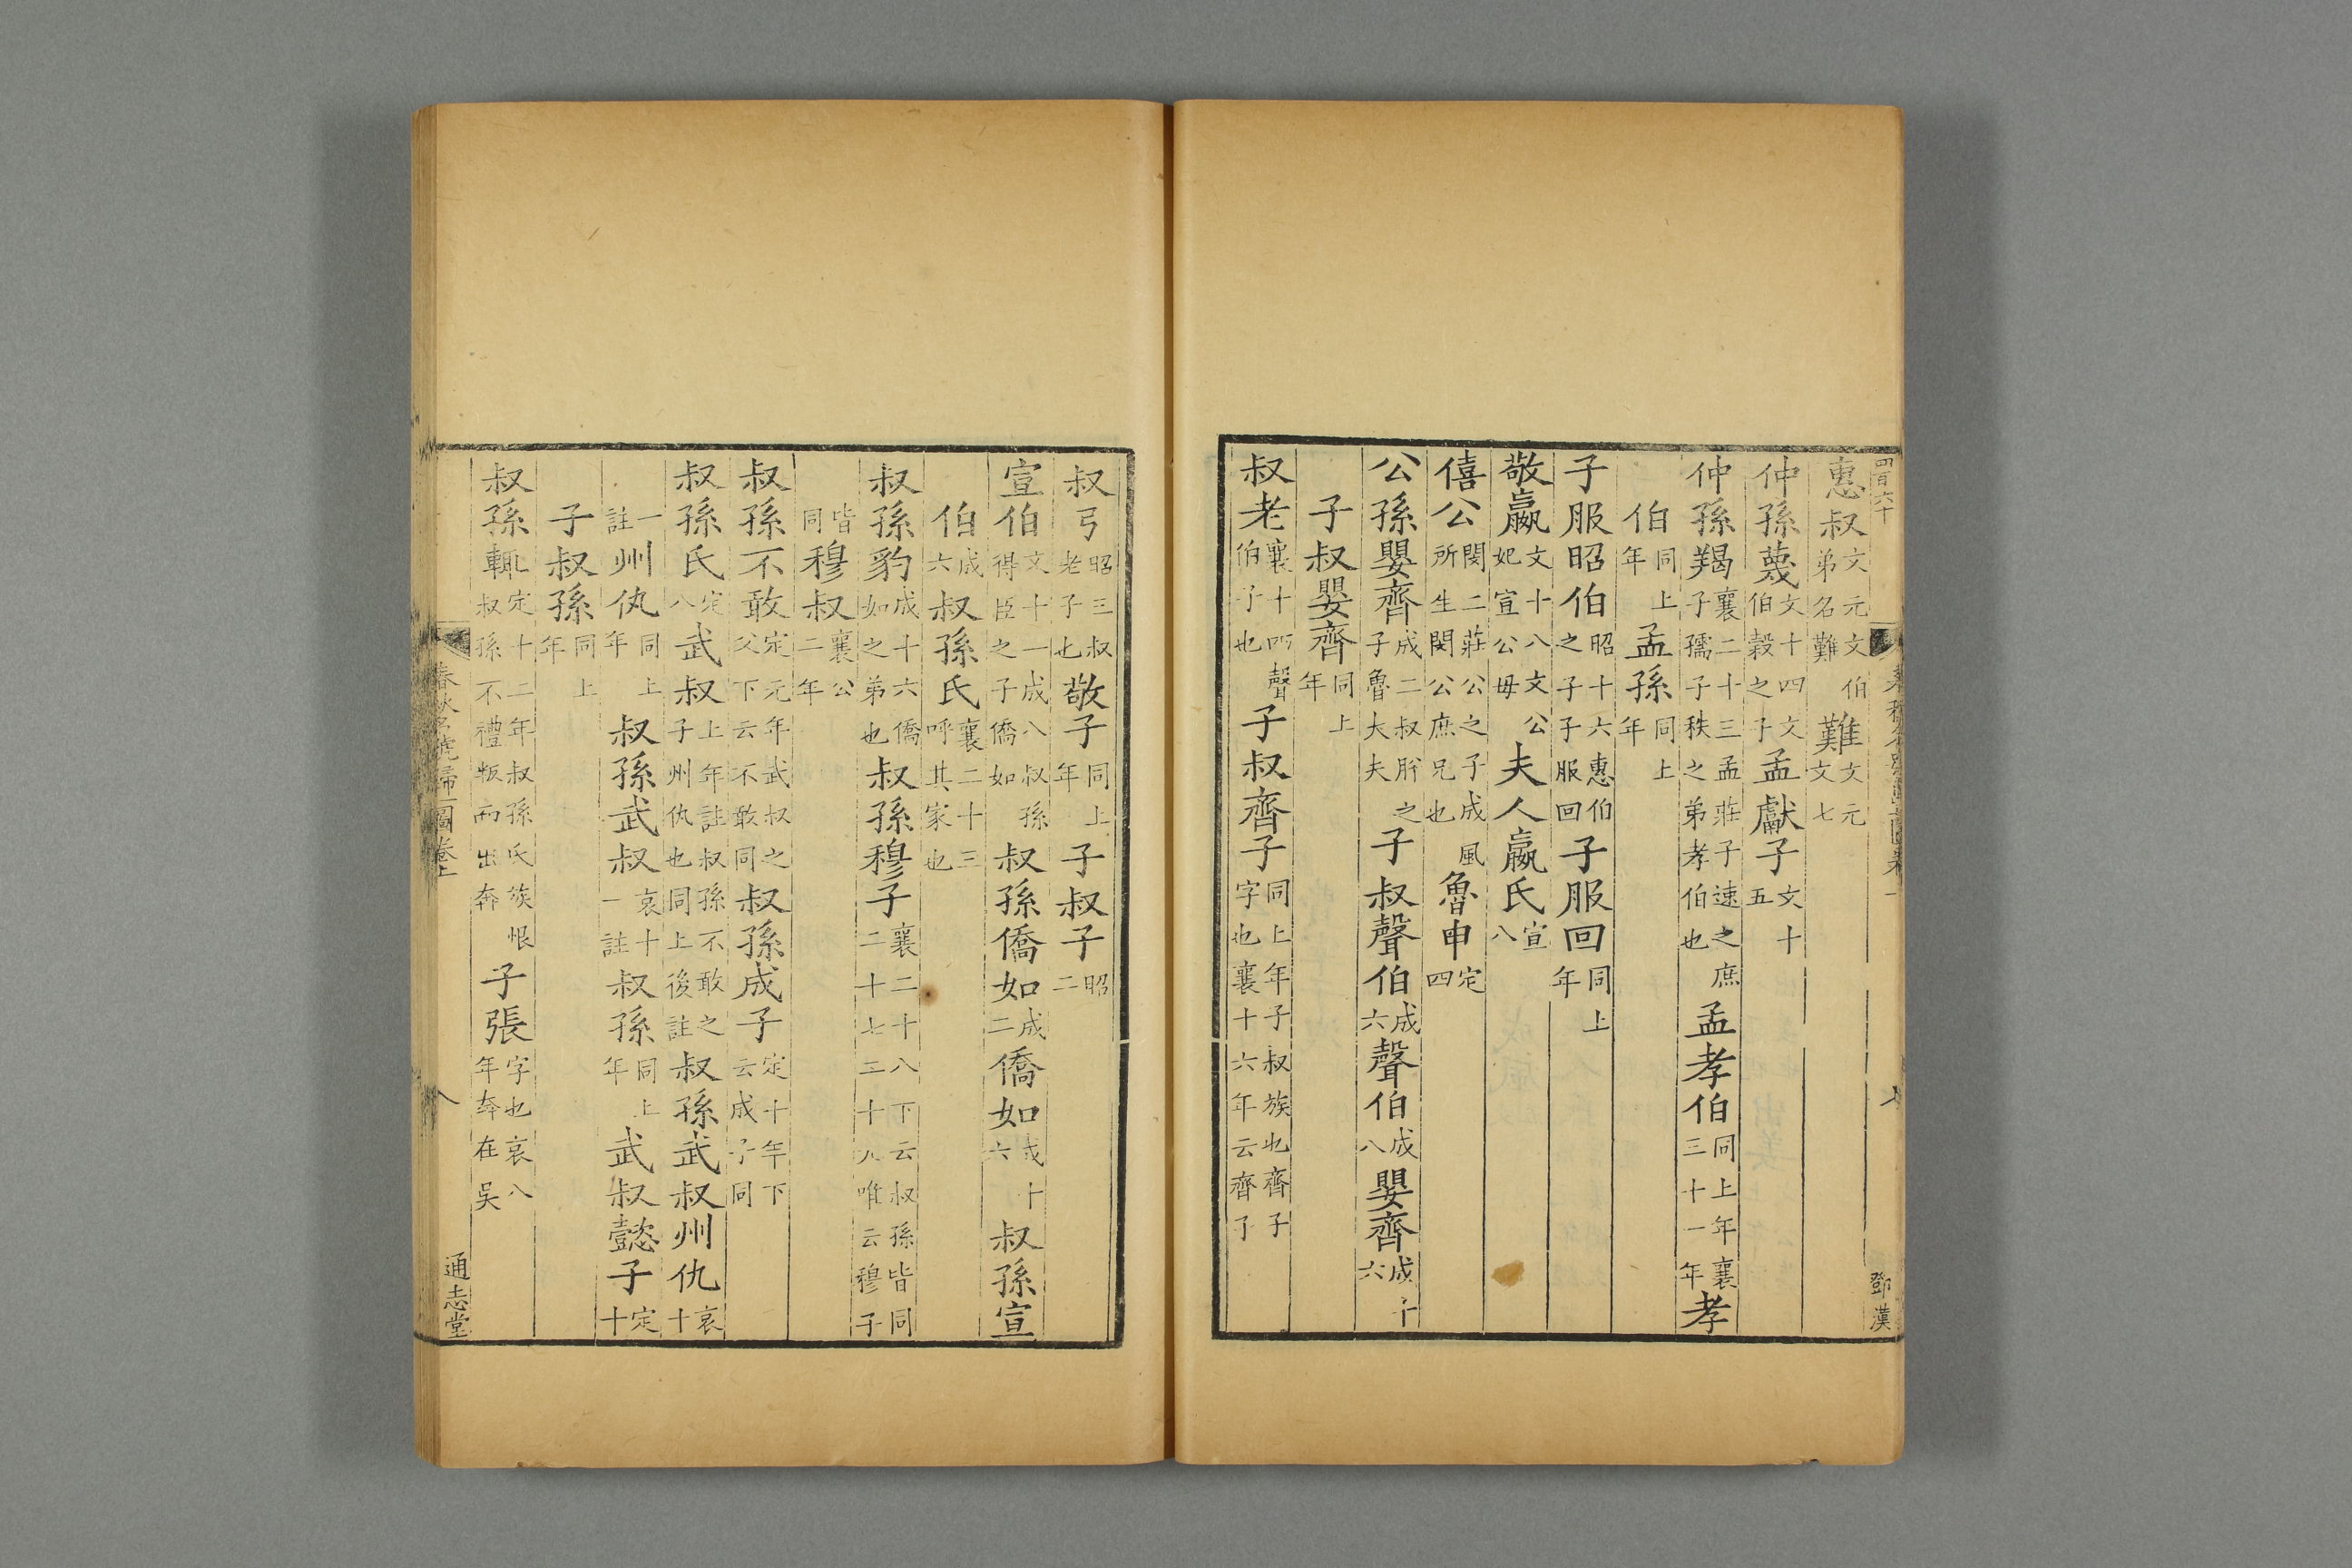 四百六十
惠叔文元文伯弟名難難文元文七
仲孫蔑文十四文伯穀之子孟獻子文十五
仲孫羯襄二十三孟莊子速之庶子孺子秩之弟孝伯也孟孝伯同上年襄三十一年孝
伯同上年孟孫同上年
子服昭伯昭十六惠伯之子子服回子服回同上年
敬嬴文十八文公妃宣公毋夫人嬴氏宣八
僖公閔二莊公之子成風所生閔公庶兄也魯申定四
公孫嬰齊成二叔肸之子魯大夫子叔聲伯成六聲伯成八嬰齊成十六
子叔嬰齊同上年
叔老襄十四聲伯子也子叔齊子同上年子叔族也齊子字也襄十六年云齊子
鄧漢
叔弓昭三叔老子也敬子同上年子叔子昭二
宣伯文十一成八叔孫得臣之子僑如叔孫僑如成二僑如成十六叔孫宣
伯成六叔孫氏襄二十三呼其家也
叔孫豹成十六僑如之弟也叔孫穆子襄二十八下云叔孫皆同二十七三十九唯云穆子
皆同穆叔襄公二年
叔孫不敢定元年武叔之父下云不敢同叔孫成子定十年下云成子同
叔孫氏定八武叔上年註叔孫不敢之子州仇也同上後註叔孫武叔州仇哀十
一註州仇同上年叔孫武叔哀十一註叔孫同上年武叔懿子定十
子叔孫同上年
叔孫輒定十二年叔孫氏族恨叔孫不禮叛而出奔子張字也哀八年奔在吳
春秋名號歸一圖卷上
八
通志堂